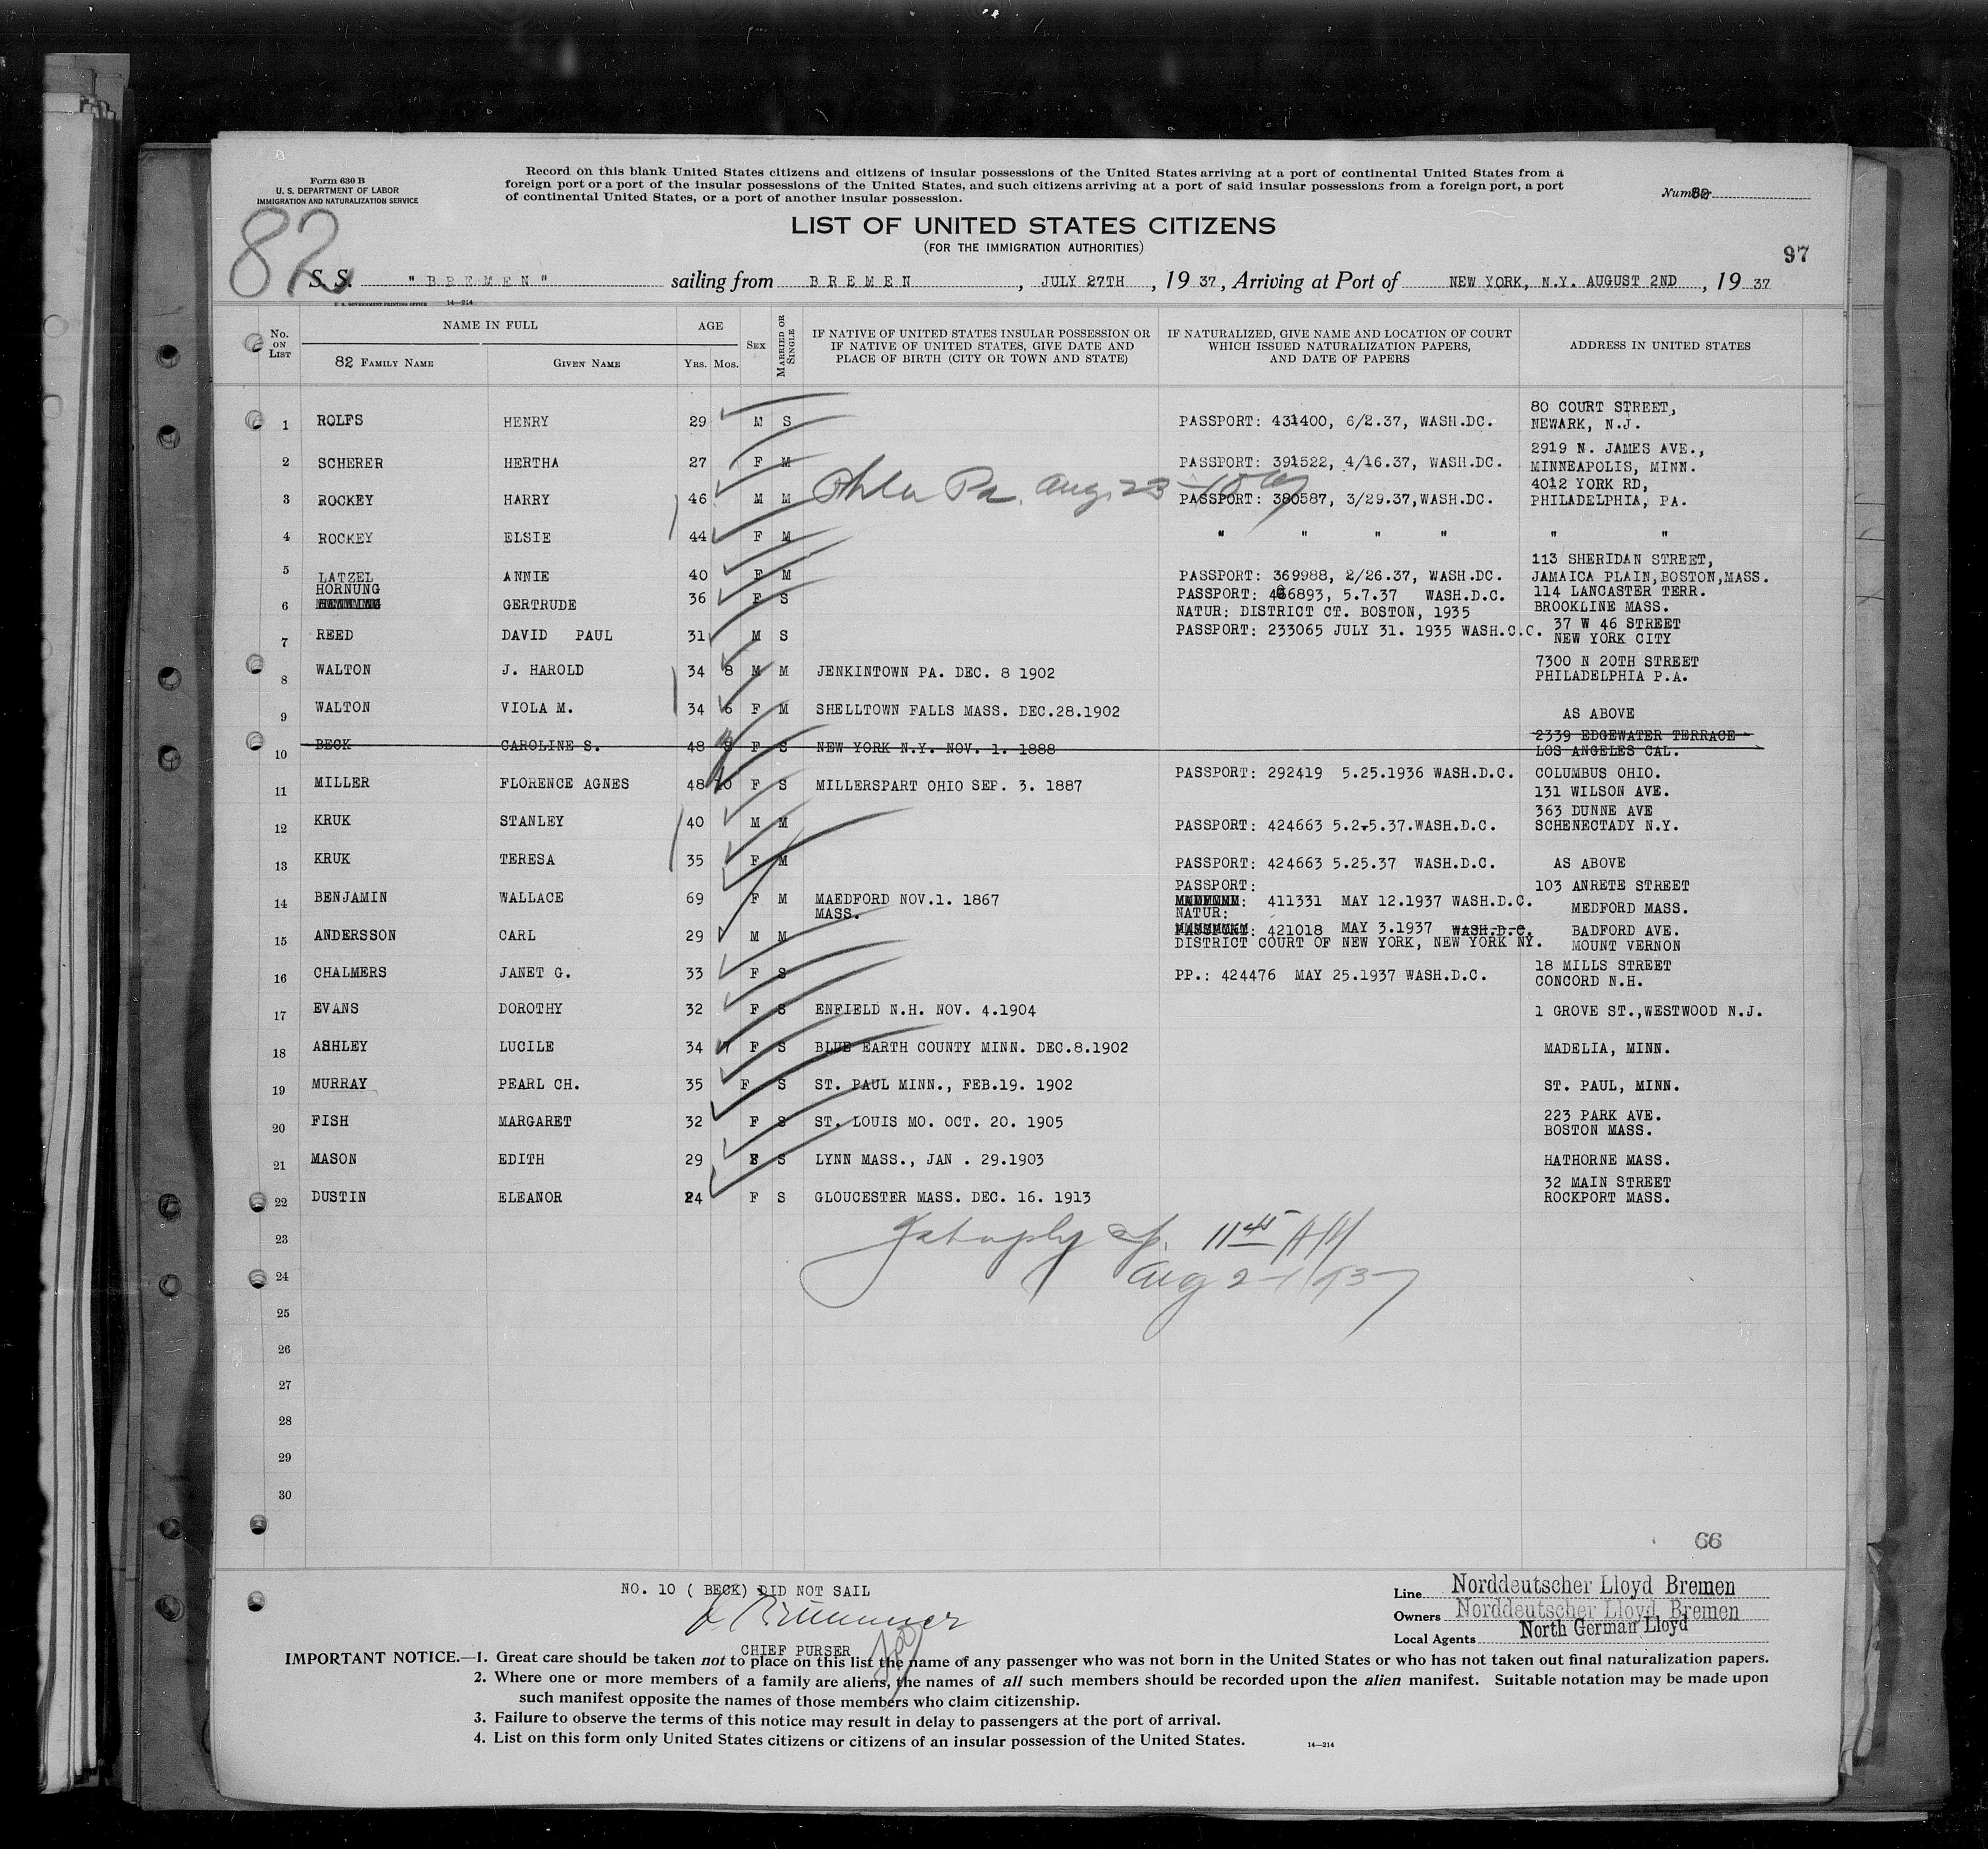 Form 630 B
U. S. DEPARTMENT OF LABOR
IMMIGRATION AND NATURALIZATION SERVICE
Record on this blank United States citizens and citizens of insular possessions of the United States arriving at a port of continental United States from a
foreign port or a port of the insular possessions of the United States, and such citizens arriving at a port of said insular possessions from a foreign port, a port
of continental United States, or a port of another insular possession.
Number 82
LIST OF UNITED STATES CITIZENS
(FOR THE IMMIGRATION AUTHORITIES)
97
82
S. S. "BREMEN" sailing from BREMEN, JULY 27TH, 19 37, Arriving at Port of NEW YORK, N.Y. AUGUST 2ND, 19 37
U. S. GOVERNMENT PRINTING OFFICE 14—214
No. ON LIST NAME IN FULL AGE SEX MARRIED OR SINGLE IF NATIVE OF UNITED STATES INSULAR POSSESSION OR IF NATIVE OF UNITED STATES, GIVE DATE AND PLACE OF BIRTH (CITY OR TOWN AND STATE) IF NATURALIZED, GIVE NAME AND LOCATION OF COURT WHICH ISSUED NATURALIZATION PAPERS, AND DATE OF PAPERS ADDRESS IN UNITED STATES
82 FAMILY NAME GIVEN NAME YRS. MOS.
1 ROLFS HENRY 29 M S PASSPORT: 431400, 6/2.37, WASH.DC. 80 COURT STREET, NEWARK, N.J.
2 SCHERER HERTHA 27 F M PASSPORT: 391522, 4/16.37, WASH.DC. 2919 N. JAMES AVE., MINNEAPOLIS, MINN.
3 ROCKEY HARRY 46 M M Phla Pa. Aug. 23 PASSPORT: 380587, 3/29.37, WASH.DC. 4012 YORK RD, PHILADELPHIA, PA.
4 ROCKEY ELSIE 44 F M " " " " " "
5 LATZEL ANNIE 40 F M PASSPORT: 369988, 2/26.37, WASH.DC. 113 SHERIDAN STREET, JAMAICA PLAIN,BOSTON,MASS.
6 HORNUNG GERTRUDE 36 F S PASSPORT: 406893, 5.7.37 WASH.D.C. 114 LANCASTER TERR.
NATUR: DISTRICT CT. BOSTON, 1935 BROOKLINE MASS.
7 REED DAVID PAUL 31 M S PASSPORT: 233065 JULY 31. 1935 WASH.C.C. 37 W 46 STREET NEW YORK CITY
8 WALTON J. HAROLD 34 8 M M JENKINTOWN PA. DEC. 8 1902 7300 N 20TH STREET PHILADELPHIA P.A.
9 WALTON VIOLA M. 34 6 F M SHELLTOWN FALLS MASS. DEC.28.1902 AS ABOVE
10 BECK CAROLINE S. 48 F S NEW YORK N.Y. NOV. 1. 1888 2339 EDGEWATER TERRACE LOS ANGELES CAL.
11 MILLER FLORENCE AGNES 48 10 F S MILLERSPART OHIO SEP. 3. 1887 PASSPORT: 292419 5.25.1936 WASH.D.C. COLUMBUS OHIO. 131 WILSON AVE.
12 KRUK STANLEY 40 M M PASSPORT: 424663 5.2.5.37.WASH.D.C. 363 DUNNE AVE SCHENECTADY N.Y.
13 KRUK TERESA 35 F M PASSPORT: 424663 5.25.37 WASH.D.C. AS ABOVE
14 BENJAMIN WALLACE 69 F M MAEDFORD NOV.1. 1867 MASS. PASSPORT: 411331 MAY 12.1937 WASH.D.C. 103 ANRETE STREET MEDFORD MASS.
15 ANDERSSON CARL 29 M M NATUR: 421018 MAY 3.1937 WASH.D.C. BADFORD AVE.
DISTRICT COURT OF NEW YORK, NEW YORK NY. MOUNT VERNON
16 CHALMERS JANET G. 33 F S PP.: 424476 MAY 25.1937 WASH.D.C. 18 MILLS STREET CONCORD N.H.
17 EVANS DOROTHY 32 F S ENFIELD N.H. NOV. 4.1904 1 GROVE ST.,WESTWOOD N.J.
18 ASHLEY LUCILE 34 7 F S BLUE EARTH COUNTY MINN. DEC.8.1902 MADELIA, MINN.
19 MURRAY PEARL CH. 35 F S ST. PAUL MINN., FEB.19. 1902 ST. PAUL, MINN.
20 FISH MARGARET 32 F S ST. LOUIS MO. OCT. 20. 1905 223 PARK AVE. BOSTON MASS.
21 MASON EDITH 29 F S LYNN MASS., JAN . 29.1903 HATHORNE MASS.
22 DUSTIN ELEANOR 24 F S GLOUCESTER MASS. DEC. 16. 1913 32 MAIN STREET ROCKPORT MASS.
23
11 45 AM
24
Aug 2 - 1937
25
26
27
28
29
30
66
NO. 10 ( BECK) DID NOT SAIL
CHIEF PURSER
Line Norddeutscher Lloyd Bremen
Owners Norddeutscher Lloyd Bremen
Local Agents North German Lloyd
IMPORTANT NOTICE.—1. Great care should be taken not to place on this list the name of any passenger who was not born in the United States or who has not taken out final naturalization papers.
2. Where one or more members of a family are aliens, the names of all such members should be recorded upon the alien manifest. Suitable notation may be made upon
such manifest opposite the names of those members who claim citizenship.
3. Failure to observe the terms of this notice may result in delay to passengers at the port of arrival.
4. List on this form only United States citizens or citizens of an insular possession of the United States.
14—214